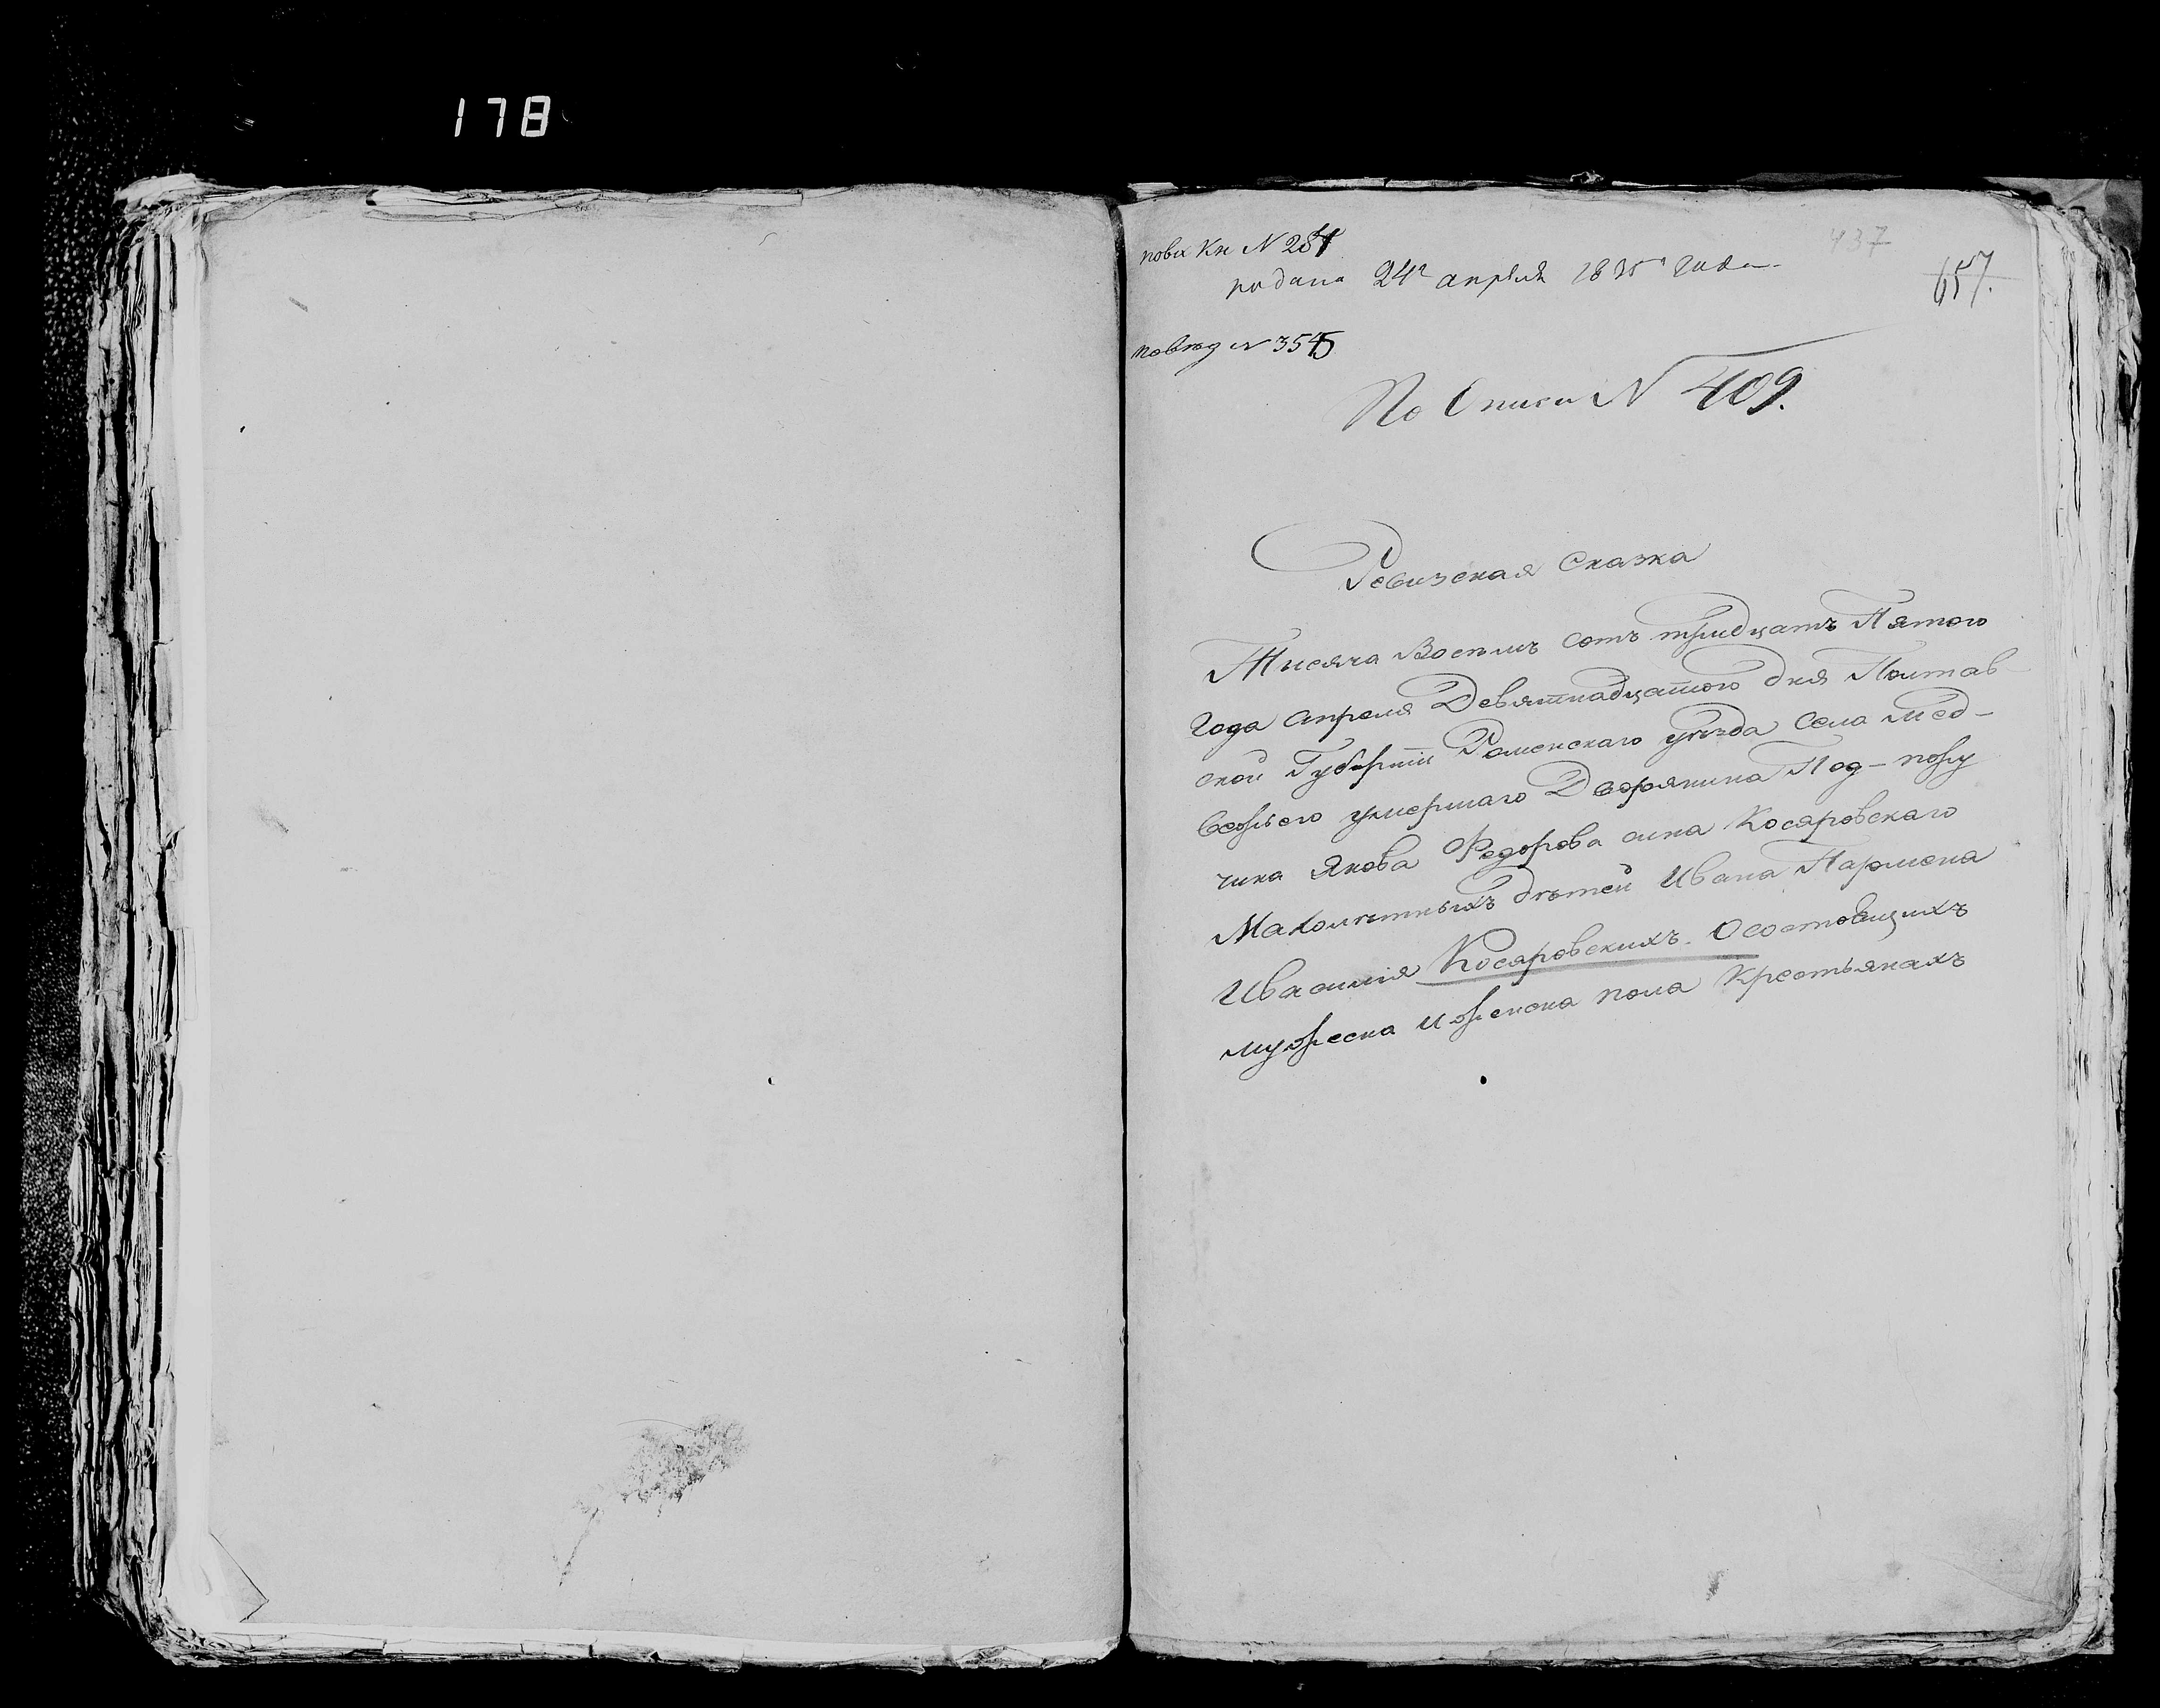 178
437
по вх Кн N 284
657.
подана 24го апреля 1835го года
по вѣд N 3545
По Описи N 409.
Ревизская Сказка
Тисяча Восемь сотъ тридцать Пятого
Года апреля Девятнадцатого дня Полтав
ской Губернѣи Роменскаго уѣзда Села Мед-
вежьего умершаго Дворянина Под-пору
чика Якова Федорова сина Косяровскаго
Малолѣтныхъ дѣтей Ивана Пармена
Ивасилія Косяровскихъ. Осостоящихъ
мужеска иженска пола Крестьянахъ